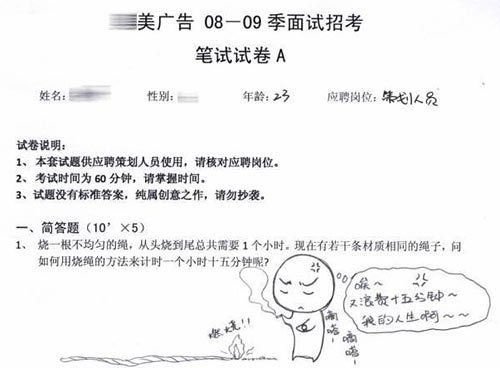 美广告 08－09 季面试招考
笔试试卷 A
姓名： 性别： 年龄：23 应聘岗位：策划人员
试卷说明：
1、 本套试题供应聘策划人员使用，请核对应聘岗位。
2、 考试时间为 60 分钟，请掌握时间。
3、试题没有标准答案，纯属创意之作，请勿抄袭。
一、简答题（10’×5）
1、 烧一根不均匀的绳，从头烧到尾总共需要 1 个小时。现在有若干条材质相同的绳子，问
如何用烧绳的方法来计时一个小时十五分钟呢?
唉～
又浪费十五分钟～
我的人生啊～～
燃烧!!
嘀嗒
嘀嗒